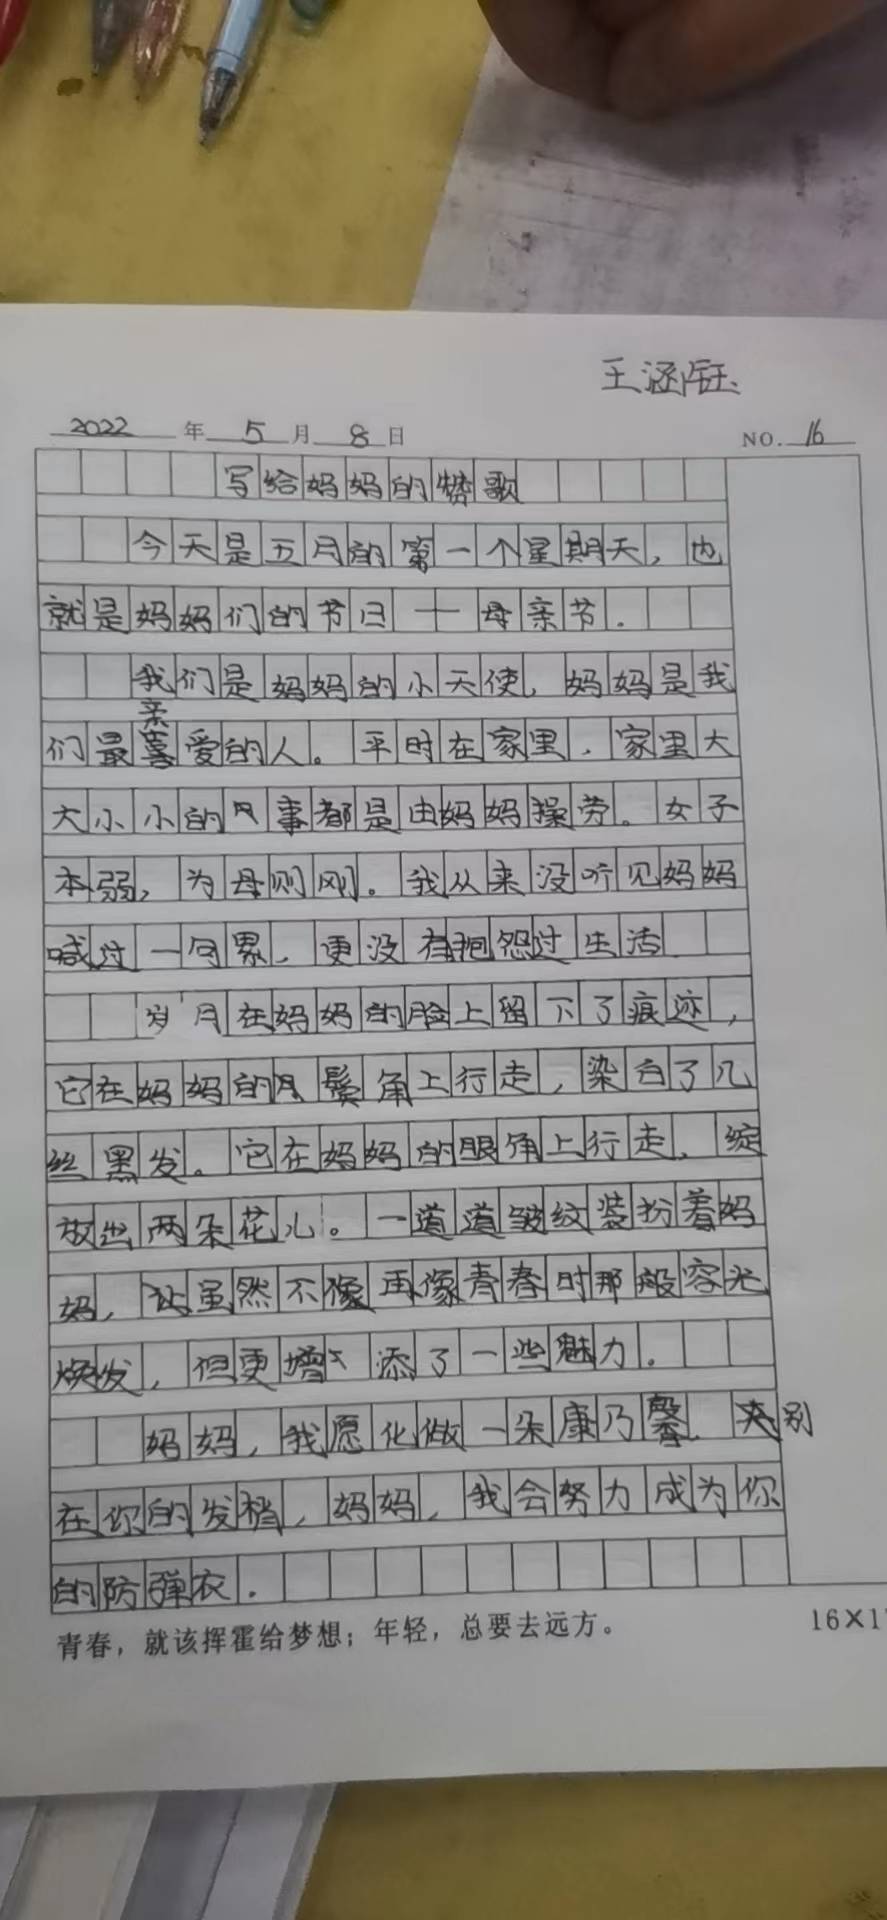 王涵钰
2022年5月8日 NO. 16
写给妈妈的赞歌
今天是五月的第一个星期天，也
就是妈妈们的节日——母亲节.
我们是妈妈的小天使，妈妈是我
们最亲爱的人。平时在家里，家里大
大小小的事都是由妈妈操劳。女子
本弱，为母则刚。我从来没听见妈妈
喊过一句累，更没有抱怨过生活
岁月在妈妈的脸上留下了痕迹，
它在妈妈的鬓角上行走，染白了几
丝黑发。它在妈妈的眼角上行走，绽
放出两朵花儿。一道道皱纹装扮着妈
妈，虽然不像再像青春时那般容光
焕发，但更增添了一些魅力.
妈妈，我愿化做一朵康乃馨，夹别
在你的发梢，妈妈，我会努力成为你
的防弹衣.
青春，就该挥霍给梦想；年轻，总要去远方。
16×1